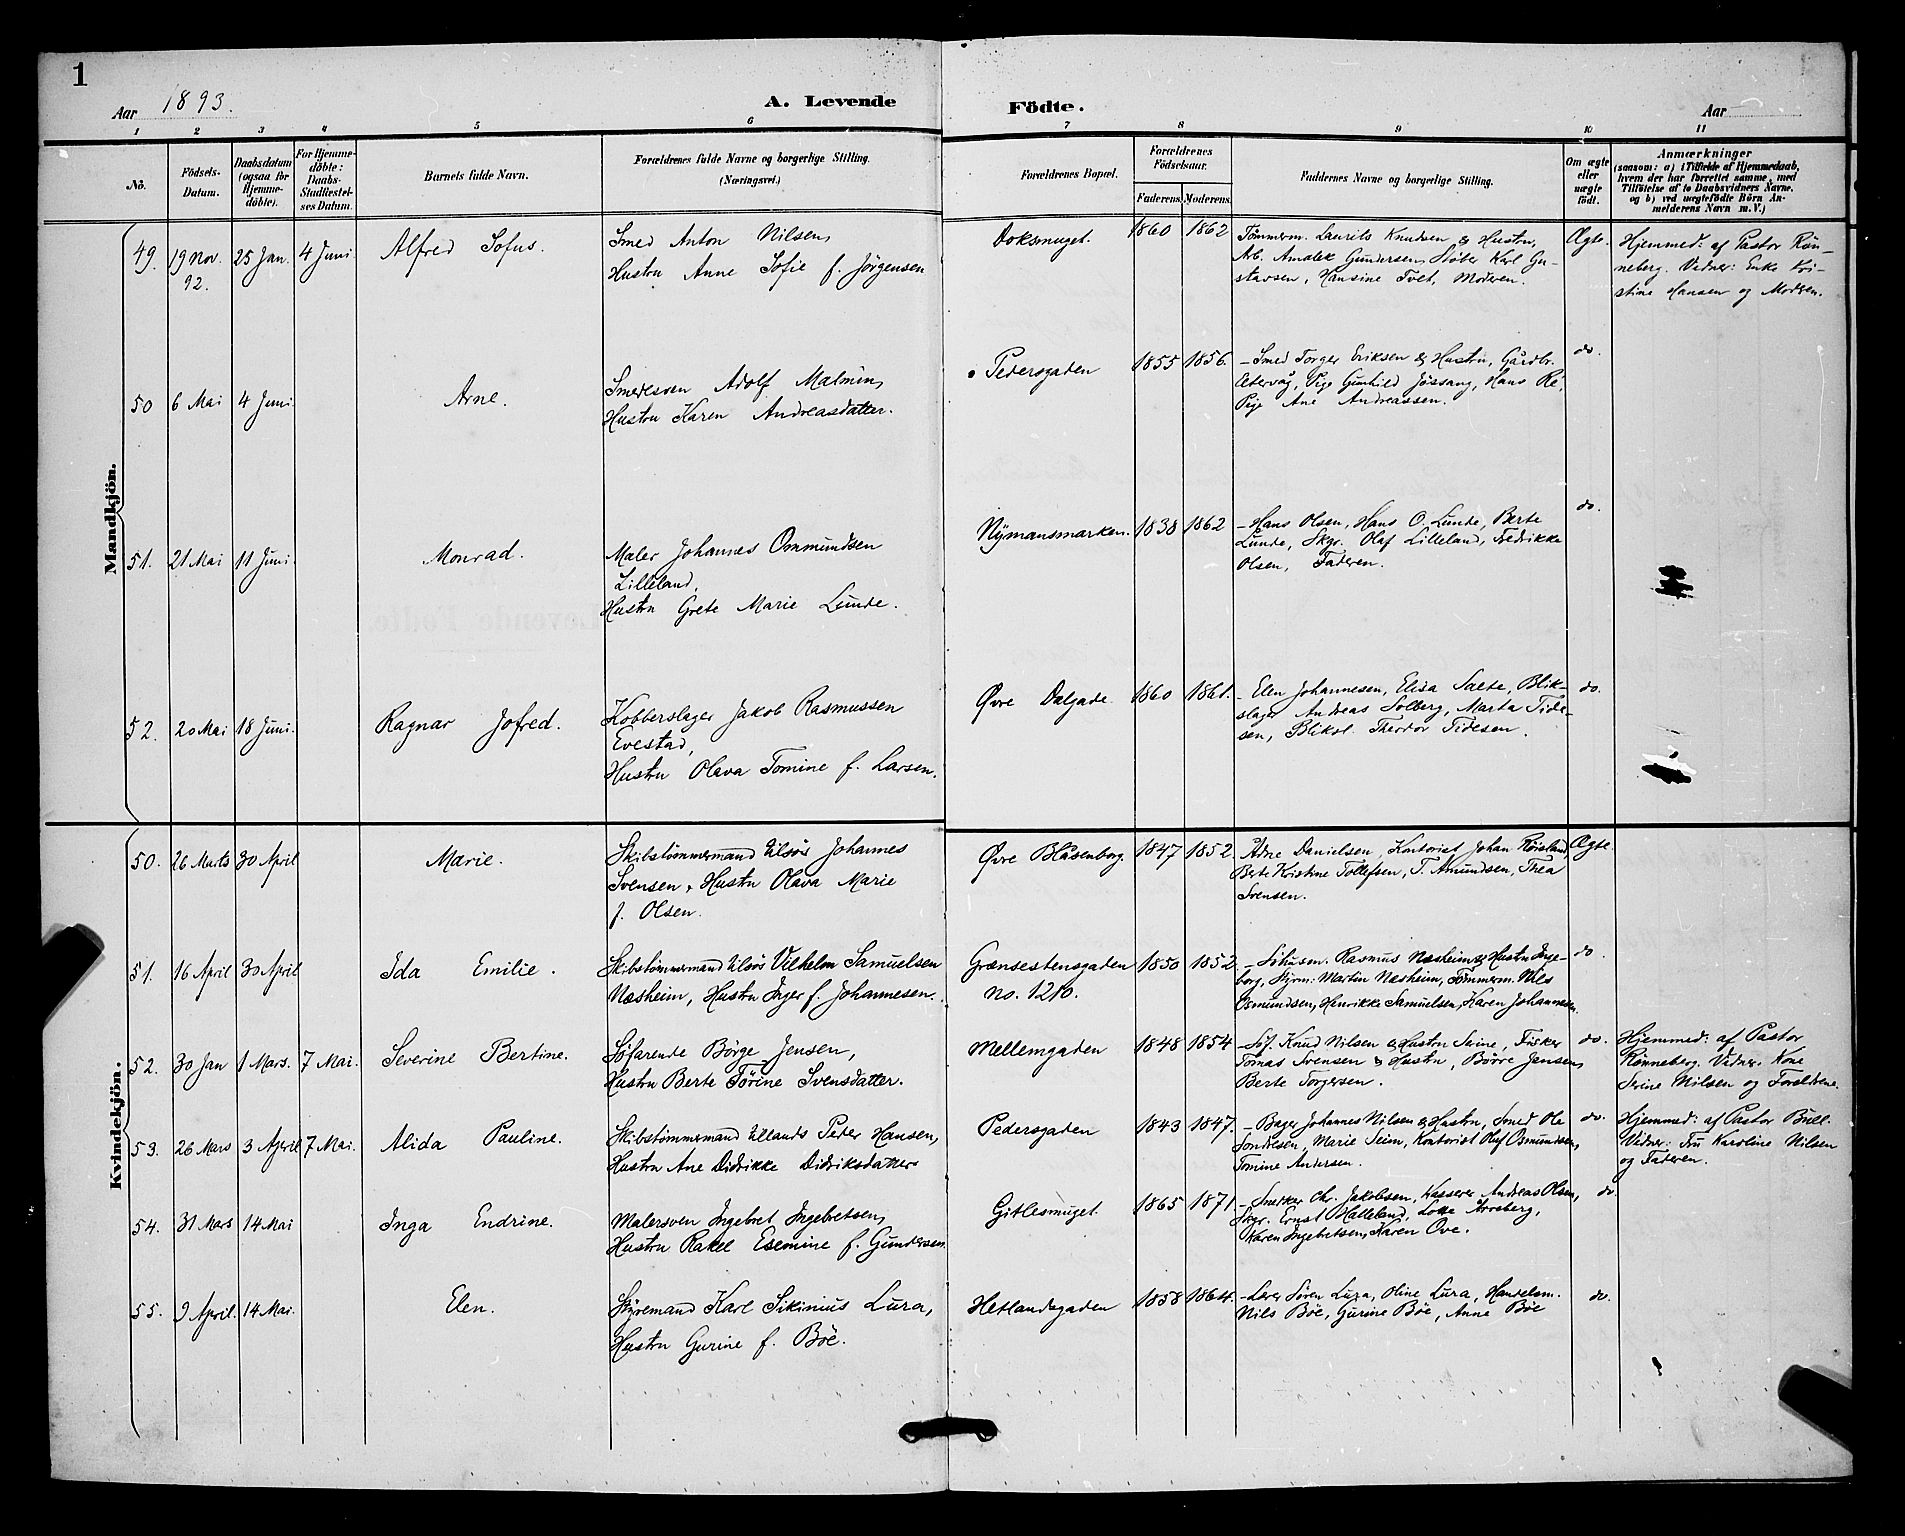 1
Aar 1893.
A. Levende Födte.
Aar
1 2 3 4 5 6 7 8 9 10 11
No.
Födsels-
Datum.
Daabsdatum
(ogsaa for
Hjemme-
döbte).
For Hjemme-
döbte:
Daabs-
Stadfæstel-
ses Datum.
Barnets fulde Navn.
Forældrenes fulde Navne og borgerlige Stilling.
(Næringsvei.)
Forældrenes Bopæl.
Forældrenes
Födselsaar.
Faderens. Moderens.
Faddernes Navne og borgerlige Stilling.
Om ægte
eller
uægte
födt.
Anmærkninger
(saasom: a) i Tilfælde af Hjemmedaab,
hvem der har forrettet samme, med
Tilföielse af to Daabsvidners Navne,
og b) ved uægtefödte Börn An-
melderens Navn m. V.)
Mandkjön.
49. 19 Nov. 92. 25 Jan. 4 Juni Alfred Sofus.
Smed Anton Nilsen,
Hustru Anne Sofie f. Jörgensen
Doksmuget. 1860 1862
Tömmerm. Laurits Knudsen & Hustru,
Arb. Amalek Gundersen, Støber Karl Gu-
stavsen, Hansine Tvet, Moderen.
Ægte.
Hjemmed: af Pastor Røn-
neberg. Vidner: Enke Kri-
stine Hansen og Modren.
50 6 Mai 4 Juni. Arne.
Smedesven Adolf Malmin,
Hustru Karen Andreasdatter.
Pedersgaden 1855 1856.
- Smed Torger Eriksen & Hustru, Gårdbr.
Etervåg, Pige Gunhild Jøssang, Hans Ré,
Pige Ane Andreassen.
do.
51. 21 Mai 11 Juni. Monrad.
Maler Johannes Ommundsen
Lilleland,
Hustru Grete Marie Lunde.
Nymansmarken. 1838 1862
- Hans Olsen, Hans O. Lunde, Berte
Lunde, Skgr. Olaf Lilleland, Fredrikke
Olsen, Faderen.
do.
52. 20 Mai 18 Juni. Ragnar Jofred.
Kobberslager Jakob Rasmussen
Evestad,
Hustru Olava Tomine f. Larsen.
Øvre Dalgade. 1860 1861.
- Elen Johannesen, Elisa Salte, Blik-
slager Andreas Solberg, Marta Tide-
sen, Bliksl. Theodor Tidesen.
do.
Kvindekjön.
50. 26 Marts 30 April Marie.
Skibstømmermand tilsös Johannes
Svensen, Hustru Olava Marie
f. Olsen.
Øvre Blåsenborg. 1847 1852.
Adne Danielsen, Kontorist Johan Røisland,
Berte Kristine Tollefsen, T. Amundsen, Thea
Svensen.
Ægte.
51. 16 April 30 April Ida Emilie.
Skibstømmermand tilsös Vilhelm Samuelsen
Næsheim, Hustru Inger f. Johannesen.
Grænsestensgaden
No. 1210.
1850 1852.
Rasmus Næsheim & Hustru Inge-
borg, Styrm: Martin Næsheim, Tømmerm. Nils
Osmundsen, Henrikke Samuelsen, Karen Johannesen.
do.
52. 30 Jan 1 Mars. 7 Mai. Severine Bertine.
Søfarende Börge Jensen,
Hustru Berte Tørine Svensdatter.
Mellemgaden 1848 1854
- Søf. Knud Nilsen & Hustru Serine, Fisker
Tomas Svensen & Hustru, Börre Jensen,
Berte Torgersen.
do.
Hjemmed: af Pastor
Rønneberg. Vidner: Kone
Serine Nilsen og Foreldrene.
53. 26 Mars 3 April 7 Mai. Alida Pauline.
Skibstømmermand tillands Peter Hansen,
Hustru Ane Didrikke Didriksdatter
Pedersgaden 1843 1847.
- Bager Johannes Nilsen & Hustru, Smed Ole
Tondresen, Marie Seim, Kontorist Olaf Osmundsen,
Tomine Andersen.
do.
Hjemmed: af Pastor Bull.
Vidner: Fru Karoline Nilsen
og Faderen.
54. 31 Mars 14 Mai Inga Endrine.
Malersven Ingebret Ingebretsen,
Hustru Rakel Esemine f. Gundersen.
Gitlesmuget. 1865 1871.
- Snekker Chr. Jakobsen, Kasserer Andreas Olsen,
Skgr. Ernst Malleland, Lotte Arreberg,
Karen Ingebretsen, Karen Ove.
do.
55. 9 April. 14 Mai. Elen.
Styremand Karl Sikinius Lura,
Hustru Gurine f. Böe.
Hetlandsgaden 1858 1864.
- Lærer Søren Lura, Oline Lura, Handelsm.
Nils Böe, Gurine Böe, Anne Böe
do.